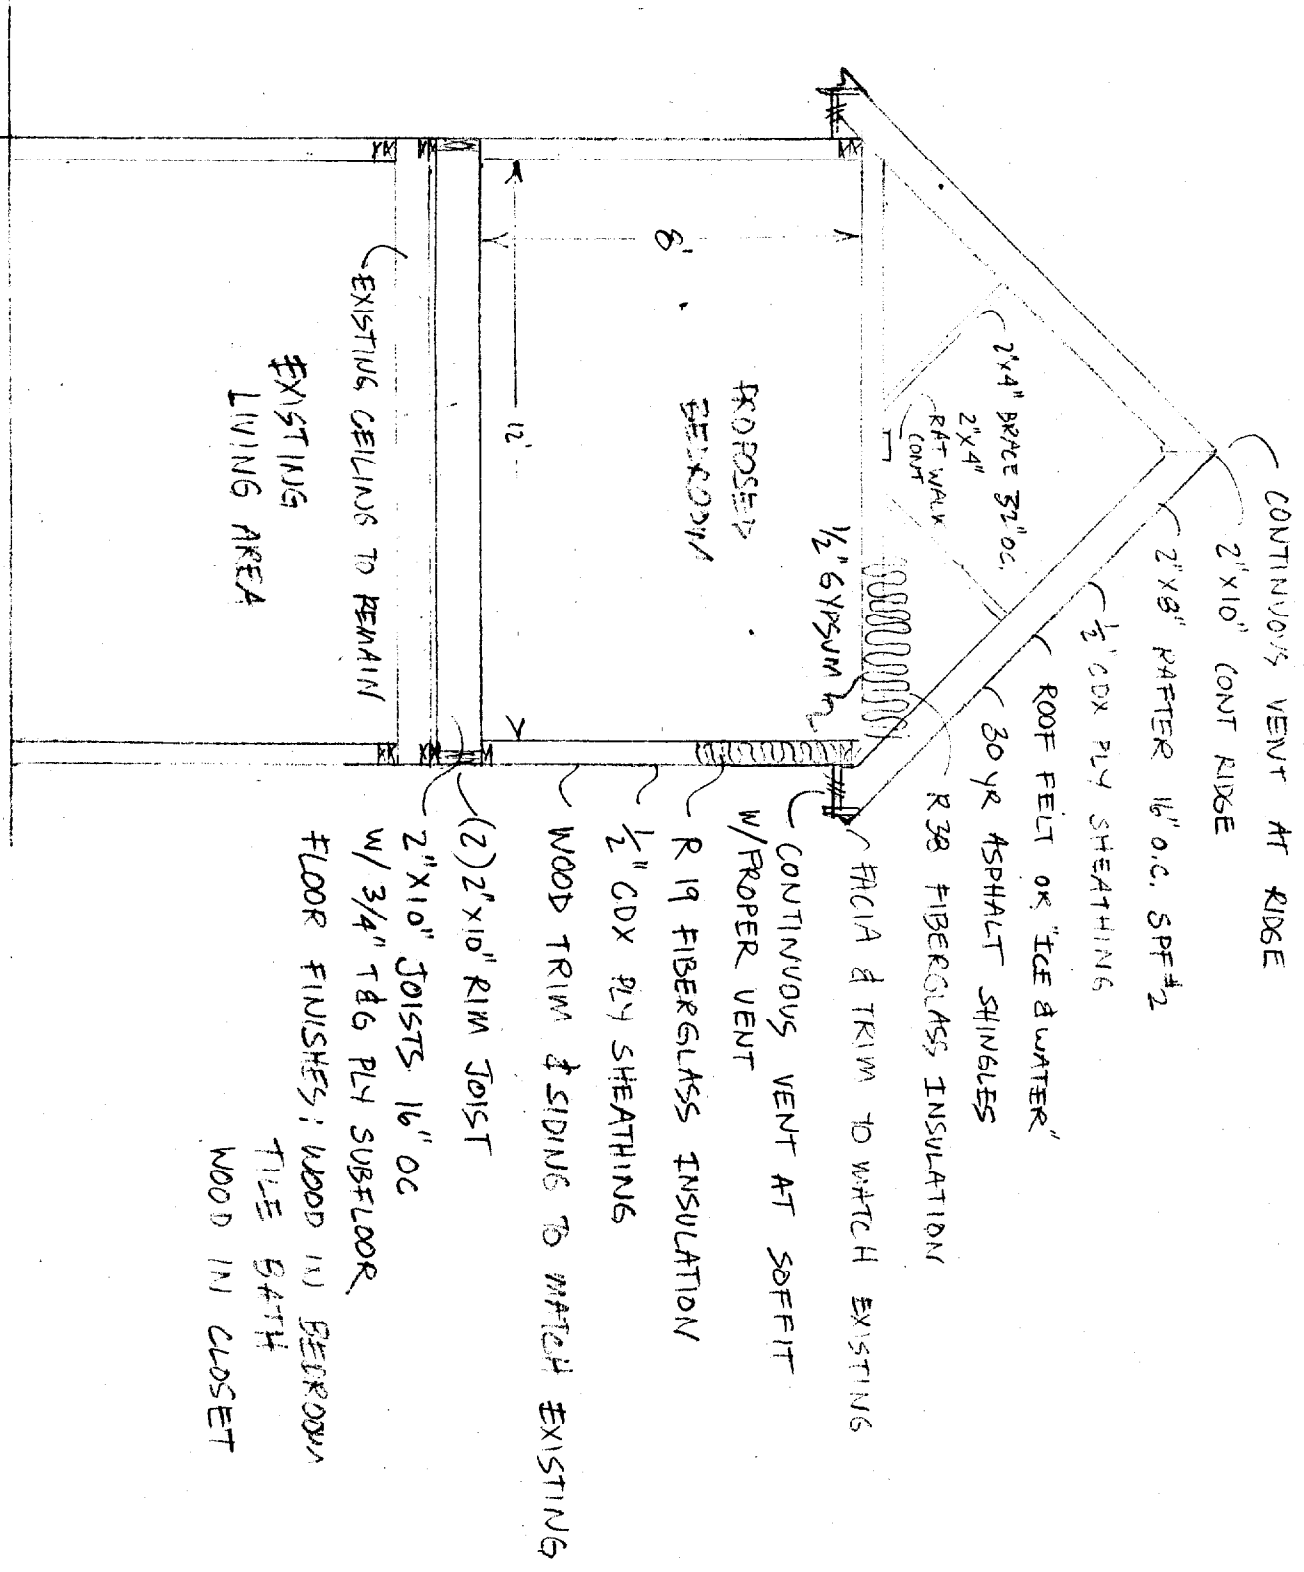 CONTINUOUS VENT AT RIDGE
2"X10" CONT RIDGE
2"X8" RAFTER 16" O.C. SPF #2
1/2" CDX PLY SHEATHING
ROOF FELT OR "ICE & WATER"
30 YR ASPHALT SHINGLES
R38 FIBERGLASS INSULATION
FACIA & TRIM TO MATCH EXISTING
CONTINUOUS VENT AT SOFFIT
W/PROPER VENT
R 19 FIBERGLASS INSULATION
1/2" CDX PLY SHEATHING
WOOD TRIM & SIDING TO MATCH EXISTING
(2) 2"X10" RIM JOIST
2"X10" JOISTS 16" OC
W/ 3/4" T&G PLY SUBFLOOR
FLOOR FINISHES: WOOD IN BEDROOM
TILE BATH
WOOD IN CLOSET
2"X4" BRACE 32" OC.
2"X4"
RAT WALK
CONT
1/2" GYPSUM
PROPOSED
BEDROOM
8'
12'
EXISTING CEILING TO REMAIN
EXISTING
LIVING AREA